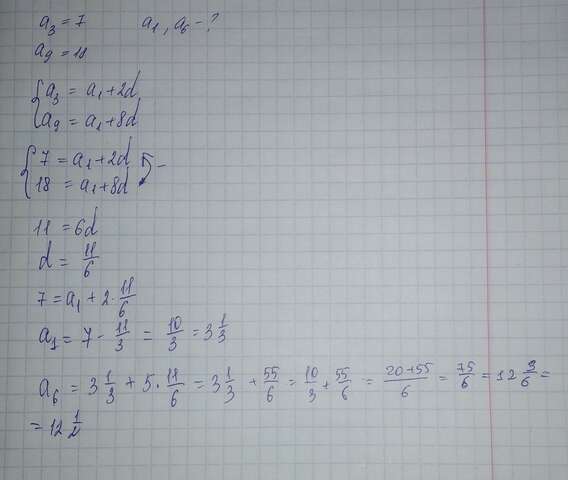 a₃ = 7 a₁, a₆ - ?
a₉ = 18
{ a₃ = a₁ + 2d
a₉ = a₁ + 8d
{ 7 = a₁ + 2d
18 = a₁ + 8d -
11 = 6d
d = 11/6
7 = a₁ + 2 · 11/6
a₁ = 7 - 11/3 = 10/3 = 3 1/3
a₆ = 3 1/3 + 5 · 11/6 = 3 1/3 + 55/6 = 10/3 + 55/6 = 20+55/6 = 75/6 = 12 3/6 =
= 12 1/2